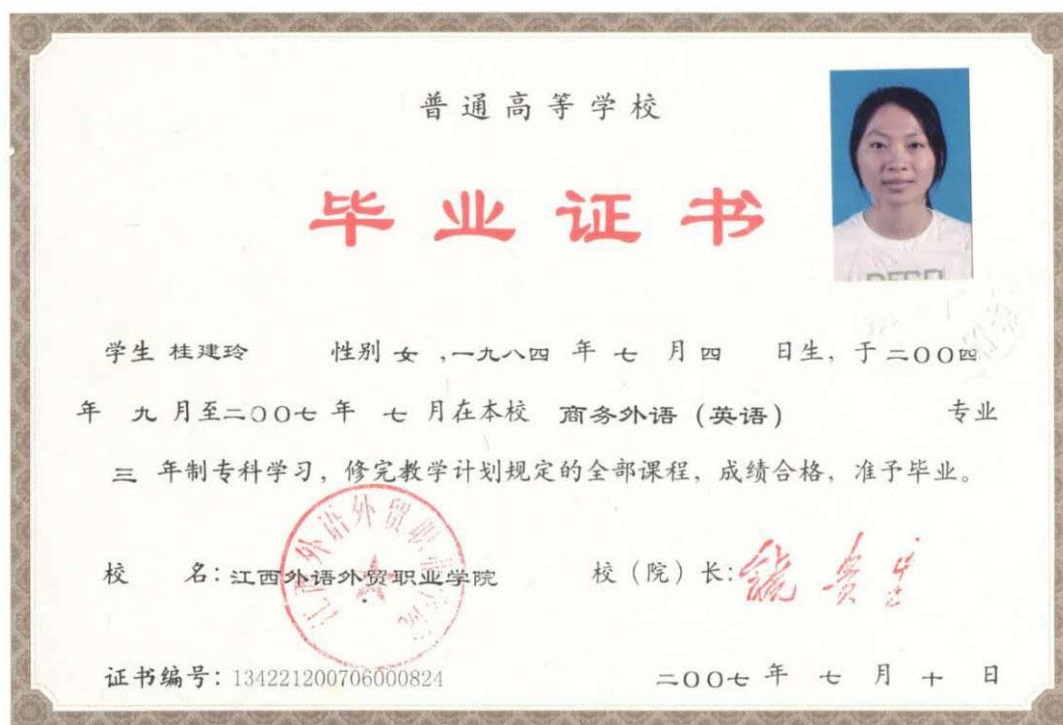 普通高等学校
毕业证书
学生 桂建玲 性别 女 ,一九八四 年 七 月 四 日生, 于 二OO四
年 九 月至二OO七 年 七 月在本校 商务外语 (英语) 专业
三 年制专科学习, 修完教学计划规定的全部课程, 成绩合格, 准予毕业。
校 名: 江西外语外贸职业学院 校 (院) 长:
江西外语外贸职业学院
证书编号: 134221200706000824 二OO七 年 七 月 十 日